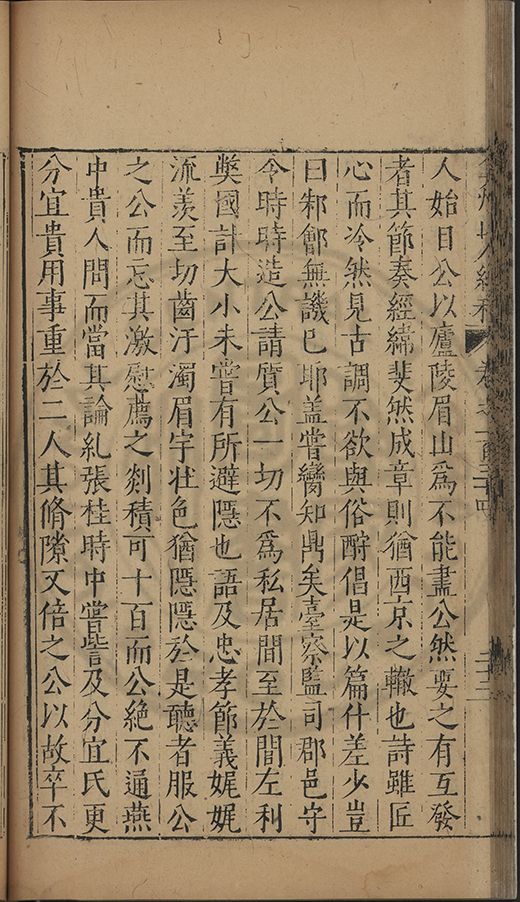 弇州山人續稿 卷之一百三十四 二十三
人始目公以廬陵眉山爲不能盡公然要之有互發
者其節奏經緯斐然成章則猶西京之轍也詩雖匠
心而冷然見古調不欲與俗酧倡是以篇什差少豈
曰邾鄶無譏巳耶盖嘗臠知鼎矣臺察監司郡邑守
令時時造公請質公一切不爲私居間至於間左利
獘國計大小未嘗有所避隱也語及忠孝節義娓娓
流羨至切齒汙濁眉宇壯色猶隱隱於是聽者服公
之公而忘其激慰薦之剡積可十百而公絶不通燕
中貴人問而當其論糺張桂時中嘗訾及分宜氏更
分宜貴用事重於二人其脩隙又倍之公以故卒不